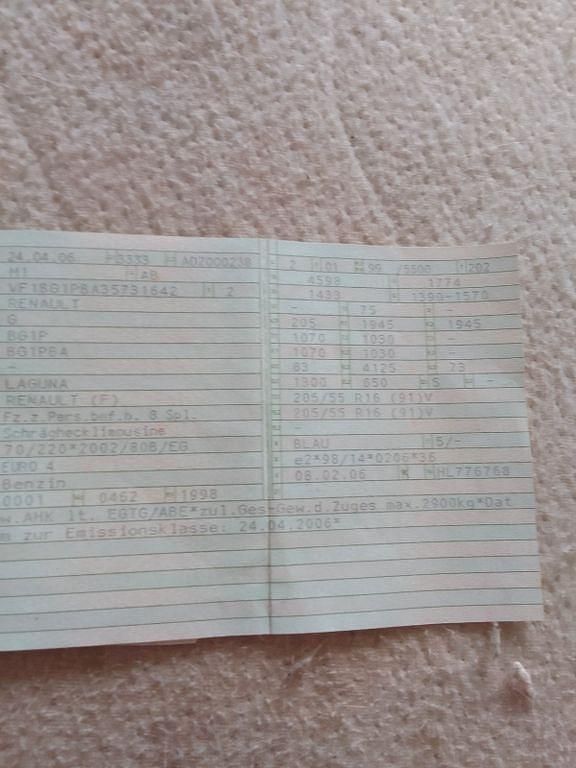 24.04.06 3333 ADZ000238
M1 AB
VF1BG1PBA35731642 2
RENAULT
G
BG1P
BG1PBA
-
LAGUNA
RENAULT (F)
Fz.z.Pers.bef.b. 8 Spl.
Schräghecklimousine
70/220*2002/80B/EG
EURO 4
Benzin
0001 0462 1998
2 01 99 /5500 202
4598 1774
1433 1390-1570
- 75 -
205 1945 1945
1070 1030 -
1070 1030 -
83 4125 73
1300 650 5 -
205/55 R16 (91)V
205/55 R16 (91)V
-
BLAU 5/-
e2*98/14*0206*36
08.02.06 K HL776768
w.AHK lt. EGTG/ABE*zul.Ges-Gew.d.Zuges max.2900kg*Dat
m zur Emissionsklasse: 24.04.2006*